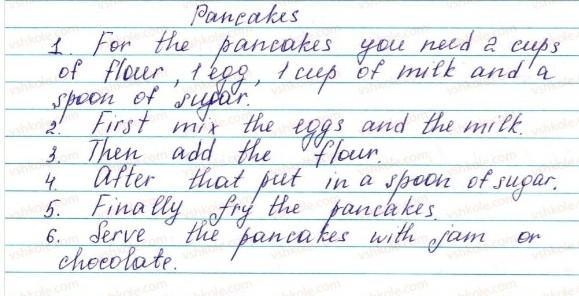 Pancakes
1. For the pancakes you need 2 cups
of flour, 1 egg, 1 cup of milk and a
spoon of sugar.
2. First mix the eggs and the milk.
3. Then add the flour.
4. After that put in a spoon of sugar.
5. Finally fry the pancakes.
6. Serve the pancakes with jam or
chocolate.